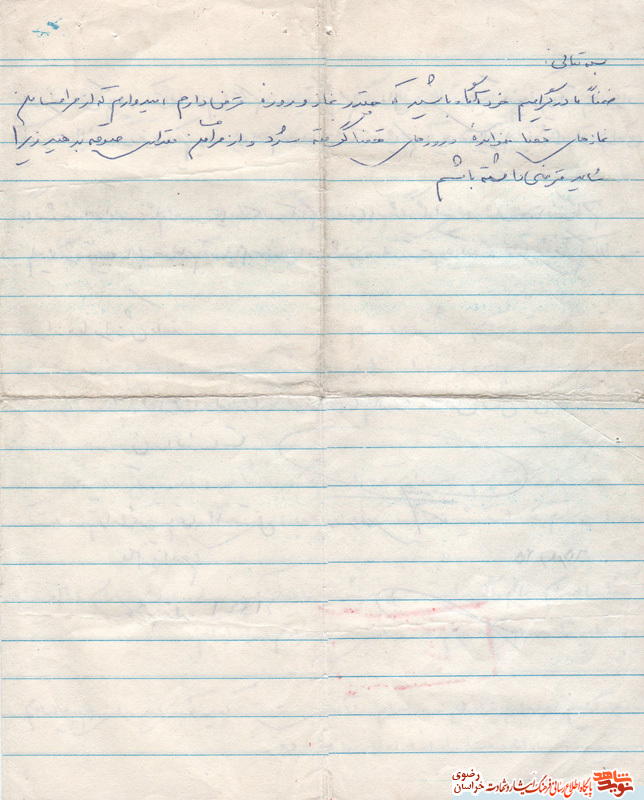 بسمه تعالی:
ضمناً مادر گرامیم خود آگاه باشید که چقدر نماز و روزه قرض دارم امیدوارم که از طرف من
نمازهای قضا خوانده و روزه‌های قضا گرفته شود و از طرف من مقداری صدقه بدهید زیرا
شاید قرضی داشته باشم
نوید شاهد
پایگاه اطلاع رسانی فرهنگ ایثار و شهادت
خراسان رضوی